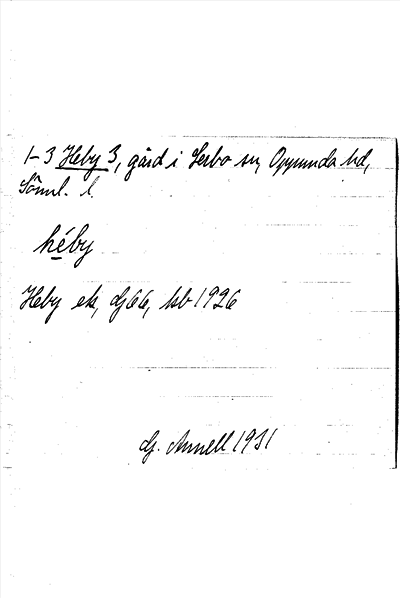 1-3 Heby 3, gård i Lerbo sn, Oppunda hd,
Söml. l.
héby
Heby ek, dj 66, hb 1926
G. Annell 1931